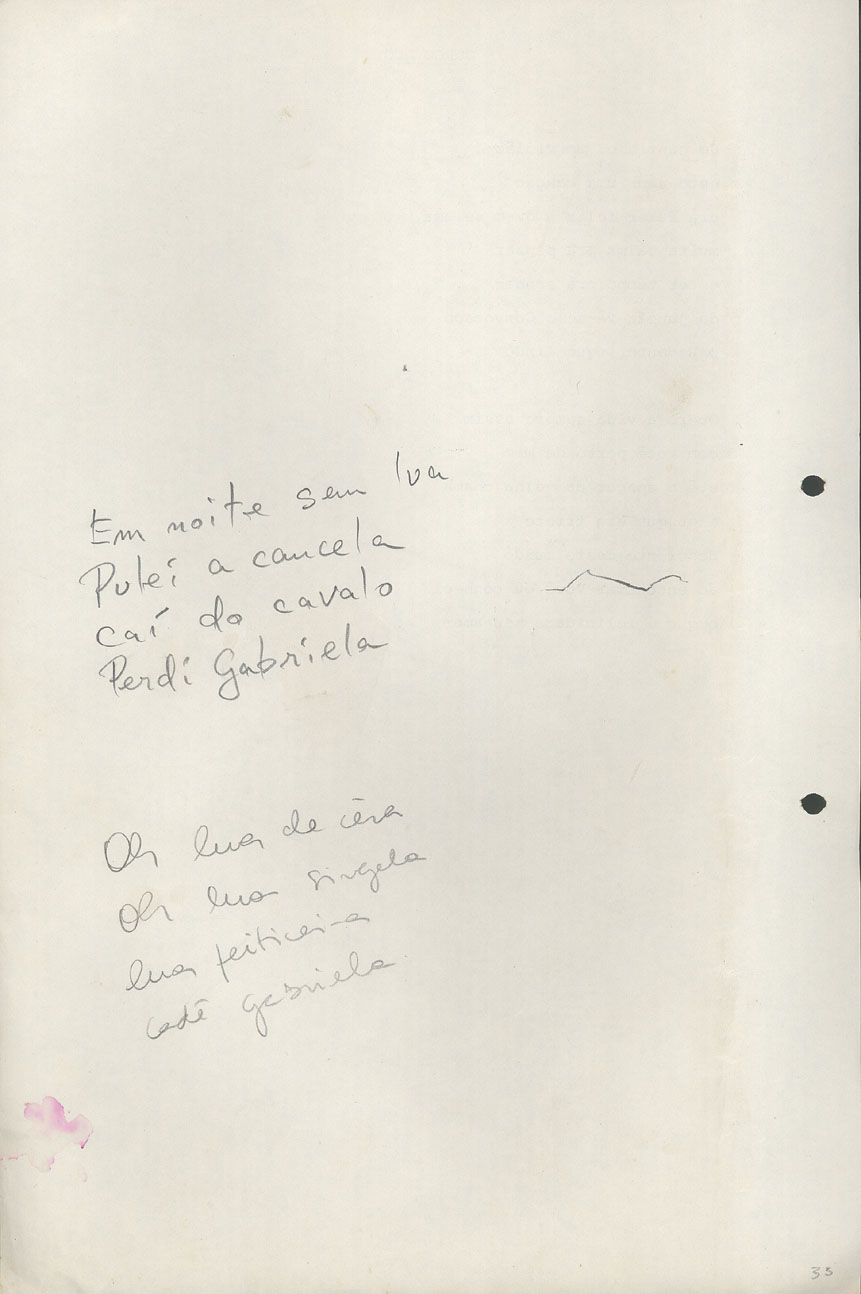 Em noite sem lua
Pulei a cancela
caí do cavalo
Perdi Gabriela
Oh lua de cêra
Oh lua singela
lua feiticeira
cadê gabriela
33